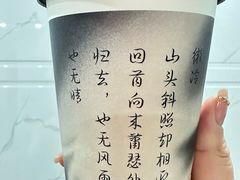 微冷
山头斜照却相迎
回首向来萧瑟处
归去，也无风雨
也无晴